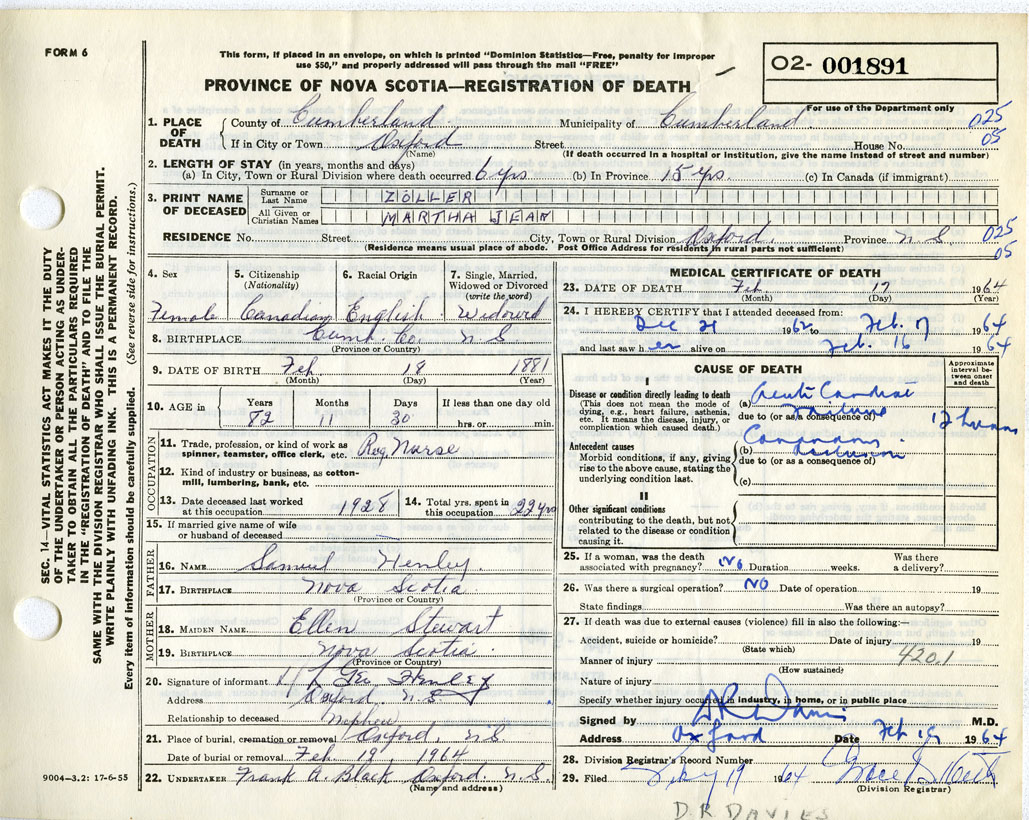 FORM 6
This form, if placed in an envelope, on which is printed "Dominion Statistics—Free, penalty for improper
use $50," and properly addressed will pass through the mail "FREE"
PROVINCE OF NOVA SCOTIA—REGISTRATION OF DEATH
02- 001891
For use of the Department only
1. PLACE OF DEATH
County of Cumberland Municipality of Cumberland 025
If in City or Town Oxford Street House No. 05
(Name) (If death occurred in a hospital or institution, give the name instead of street and number)
2. LENGTH OF STAY (in years, months and days)
(a) In City, Town or Rural Division where death occurred 6 yrs (b) In Province 15 yrs. (c) In Canada (if immigrant)
3. PRINT NAME OF DECEASED
Surname or Last Name ZOLLER
All Given or Christian Names MARTHA JEAN
RESIDENCE No. Street City, Town or Rural Division Oxford. Province N.S. 025
(Residence means usual place of abode. Post Office Address for residents in rural parts not sufficient) 05
4. Sex
Female
5. Citizenship
(Nationality)
Canadian
6. Racial Origin
English
7. Single, Married,
Widowed or Divorced
(write the word)
Widowed
8. BIRTHPLACE Cumb. Co. N.S.
(Province or Country)
9. DATE OF BIRTH Feb 18 1881
(Month) (Day) (Year)
10. AGE in
Years Months Days If less than one day old
82 11 30 hrs. or min.
OCCUPATION
11. Trade, profession, or kind of work as
spinner, teamster, office clerk, etc. Reg. Nurse
12. Kind of industry or business, as cotton-
mill, lumbering, bank, etc.
13. Date deceased last worked
at this occupation 1928
14. Total yrs. spent in
this occupation 22 yrs
15. If married give name of wife
or husband of deceased
FATHER
16. NAME Samuel Henley
17. BIRTHPLACE Nova Scotia
(Province or Country)
MOTHER
18. MAIDEN NAME Ellen Stewart
19. BIRTHPLACE Nova Scotia.
(Province or Country)
20. Signature of informant Geo Henley
Address Oxford N.S
Relationship to deceased Nephew
21. Place of burial, cremation or removal Oxford, N.S
Date of burial or removal Feb 19, 1964
22. UNDERTAKER Frank A. Black Oxford. N.S.
(Name and address)
9004—3.2: 17-6-55
MEDICAL CERTIFICATE OF DEATH
23. DATE OF DEATH Feb. 17 1964
(Month) (Day) (Year)
24. I HEREBY CERTIFY that I attended deceased from:
Dec 21 1962 to Feb. 17 1964
and last saw her alive on Feb. 16 1964
CAUSE OF DEATH
Approximate
interval be-
tween onset
and death
I
Disease or condition directly leading to death
(This does not mean the mode of
dying, e.g., heart failure, asthenia,
etc. It means the disease, injury, or
complication which caused death.)
(a) Acute Cardiac
failure
due to (or as a consequence of)
12 hours
Antecedent causes
Morbid conditions, if any, giving
rise to the above cause, stating the
underlying condition last.
(b) Coronary
occlusion
due to (or as a consequence of)
(c)
II
Other significant conditions
contributing to the death, but not
related to the disease or condition
causing it.
25. If a woman, was the death
associated with pregnancy? No Duration weeks. Was there
a delivery?
26. Was there a surgical operation? NO Date of operation 19
State findings Was there an autopsy?
27. If death was due to external causes (violence) fill in also the following:—
Accident, suicide or homicide? Date of injury 19
(State which) 4201
Manner of injury
(How sustained)
Nature of injury
Specify whether injury occurred in industry, in home, or in public place
Signed by D R Davies M.D.
Address Oxford Date Feb 18 1964
28. Division Registrar's Record Number
29. Filed Feby 19 1964
(Division Registrar)
D.R DAVIES
SEC. 14—VITAL STATISTICS ACT MAKES IT THE DUTY
OF THE UNDERTAKER OR PERSON ACTING AS UNDER-
TAKER TO OBTAIN ALL THE PARTICULARS REQUIRED
IN THE "REGISTRATION OF DEATH" AND TO FILE THE
SAME WITH THE DIVISION REGISTRAR WHO SHALL ISSUE THE BURIAL PERMIT.
WRITE PLAINLY WITH UNFADING INK. THIS IS A PERMANENT RECORD.
Every item of information should be carefully supplied. (See reverse side for instructions.)